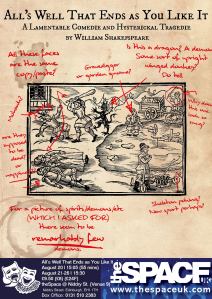 All's Well That Ends as You Like It
A Lamentable Comedie and Hysterickal Tragedie
by William Shakespeare
All these
faces are
the same
copy/paste!
Gravedigger
or garden gnome?
Is this a dragon? A demon?
Some sort of upright
winged donkey?
Do tell
are they
supposed
to be
dead?
or
napping?
For a picture of spirits/demons/etc
(WHICH I ASKED FOR)
there seem to be
remarkably few
demons.
Skeleton pushing?
New sport perhaps?
All's Well That Ends as You Like It
August 20 | 15:05 (55 mins)
August 21-25 | 15:30
£9.50 (C6) (£24F)
theSpace @ Niddry St. (Venue 9)
Niddry Street, Edinburgh, EH1 1TH
Box Office: 0131 510 2383
the SPACE UK
www.thespaceuk.com